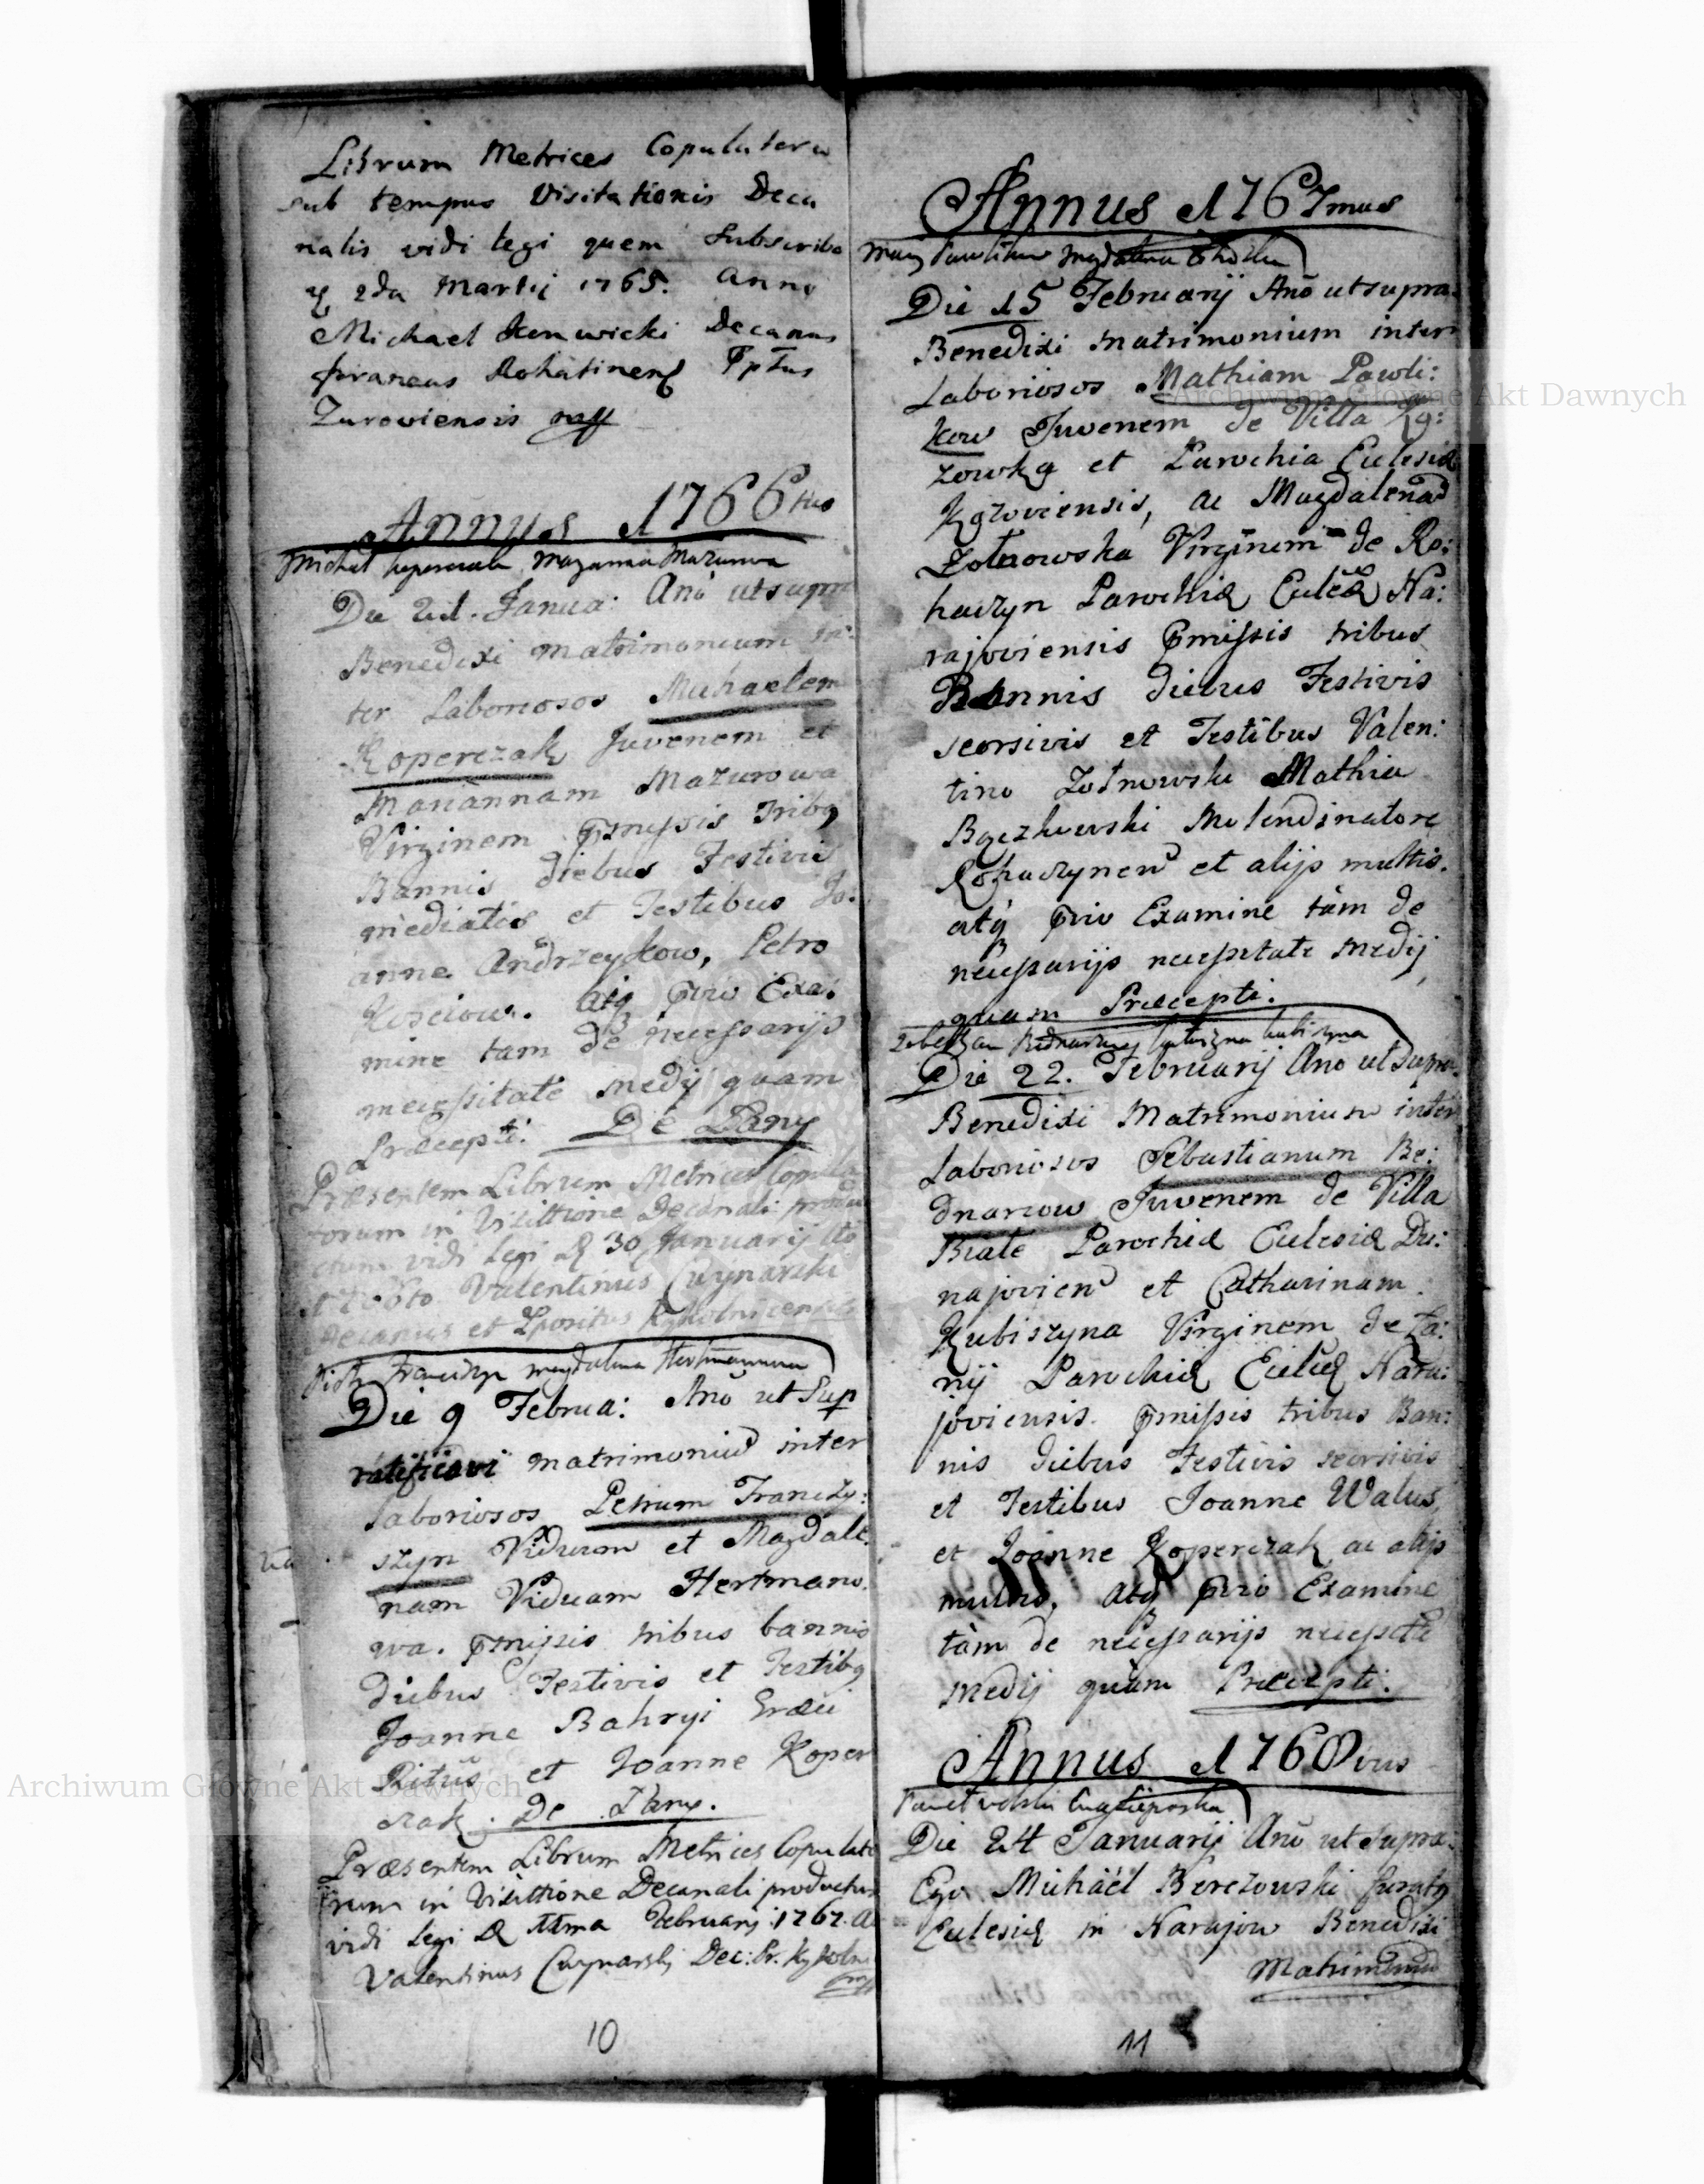 Librum Metrices Copulatoru
sub tempus Visitationis Deca
nalis vidi legi quem Subscribo
2da Martij 1765. Anno
Michael Decanus
foraneus Rohatinens
Zurowiensis
Annus 1766tus
Michal Maryanna Mazurowa
Die 21. Janua: Ano ut supra
Benedixi matrimonium in:
ter Laboriosos Michaelem
Koperczak Juvenem et
Mariannam Mazurowa
Virginem pmissis Tribq
Bannis diebus Festivis
mediatis et Testibus Jo:
anne Andrzeykow, Petro
Kosciow. atq pvio Exa:
mine tam de necessarijs
necessitate medij quam
Præcepti. De Dany
Præsentem Librum Metrices Copula
torum in Visittione Decanali produ
ctum vidi legi D 30 Januarij
Valentinus Cwynarski
Decanus et
Piotr Franczyszyn Magdalena Hertmanowa
Die 9 Februa: Ano ut Sup
ratificavi matrimoniu inter
laboriosos Petrum Franczy:
szyn Viduum et Magdale:
nam Viduam Hertmano:
wa. pmissis tribus bannis
diebus Festivis et Testibq
Joanne Bahryi Græci
Ritus et Joanne Koper
czak. De Dany.
Præsentem Librum Metrices Copulato
rum in Visittione Decanali productum
vidi legi D Februarij 1767. A
Valentinus Cwynarski Dec: Pr.
10
Annus 1767mus
Magdalena
Die 15 Februarij Ano ut supra.
Benedixi matrimonium inter
Laboriosos Mathiam Pawli:
kow Juvenem de Villa Ko:
zowka et Parochia Eclesiæ
Kozoviensis, ac Magdalena
Zotnowska Virginem de Ro:
haczyn Parochiæ Ecleæ Na:
rajoviensis pmissis tribus
Bannis diebus Festivis
seorsivis et Testibus Valen:
tino Zotnowski Mathia
Bączkowski Molendinatore
Rohaczynen et alijs multis.
atq pvio Examine tàm de
necessarijs necessitate medij
quam Præcepti.
Sebestyan Bednarow Katarzyna Kubiszyna
Die 22. Februarij Ano ut Supra.
Benedixi Matrimonium inter
Laboriosos Sebastianum Be:
dnarow Juvenem de Villa
Biate Parochiæ Eclesiæ Du:
najovien et Catharinam
Kubiszyna Virginem de Ła:
nij Parochiæ Ecleæ Nara:
joviensis. pmissis tribus Ban:
nis diebus Festivis seorsivis
et Testibus Joanne Walus,
et Joanne Koperczak ac alijs
multis, atq pvio Examine
tàm de necessarijs necessitate
medij quàm Præcepti.
Annus 1768vus
Die 24 Januarij Ano ut Supra.
Ego Michaël Berezowski
Eclesiæ in Narajow Benedixi
Matrimoniu
11
Archiwum Główne Akt Dawnych
Archiwum Główne Akt Dawnych